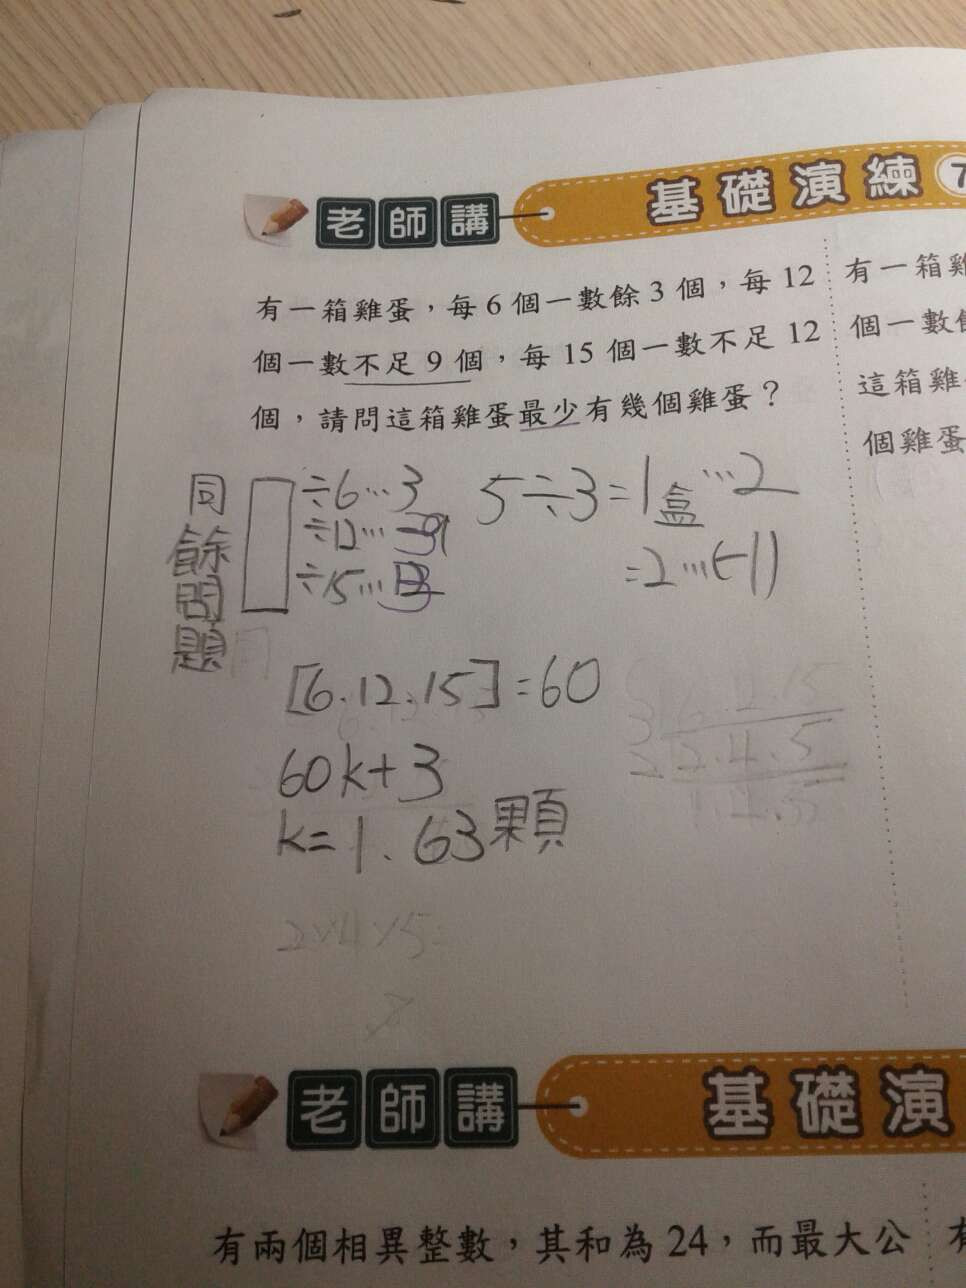 老師講
基礎演練 7
有一箱雞蛋，每 6 個一數餘 3 個，每 12
個一數不足 9 個，每 15 個一數不足 12
個，請問這箱雞蛋最少有幾個雞蛋？
有一箱雞
個一數餘
這箱雞
個雞蛋
同餘問題
÷6…3
÷12…
÷15…
5÷3=1盒…2
=2…(-1)
[6.12.15]=60
60k+3
k=1. 63顆
3 6.12.15
2 2.4.5
1.2.5
2×4×5
老師講
基礎演
有兩個相異整數，其和為 24，而最大公
有